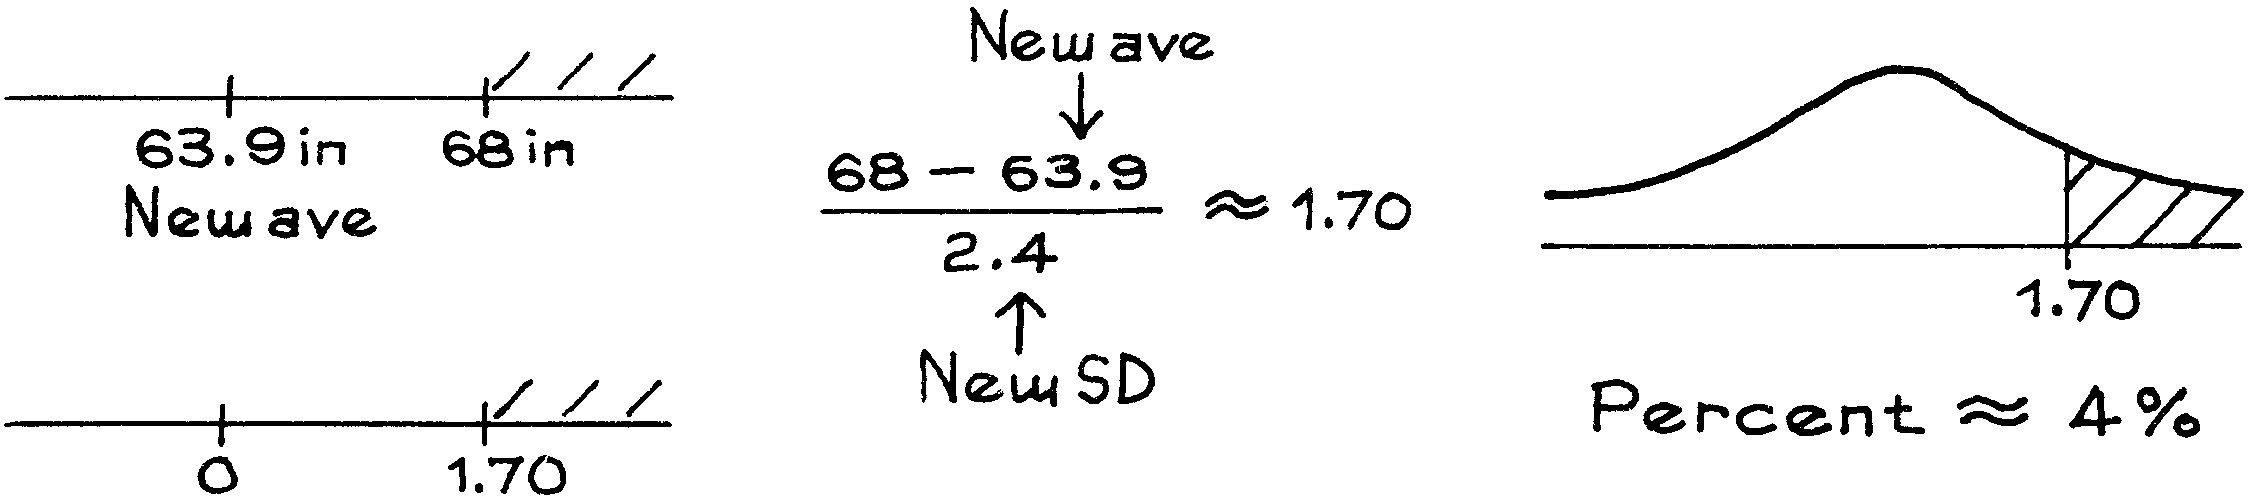 63.9 in 68 in
New ave
0 1.70
New ave
68 − 63.9
2.4
≈ 1.70
New SD
1.70
Percent ≈ 4%